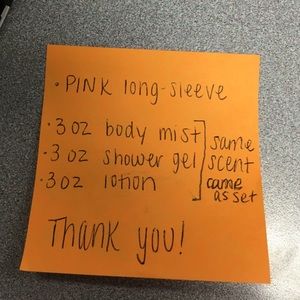 · PINK long-sleeve
· 3 oz body mist
· 3 oz shower gel
· 3 oz lotion
same
scent
came
as set
Thank you!